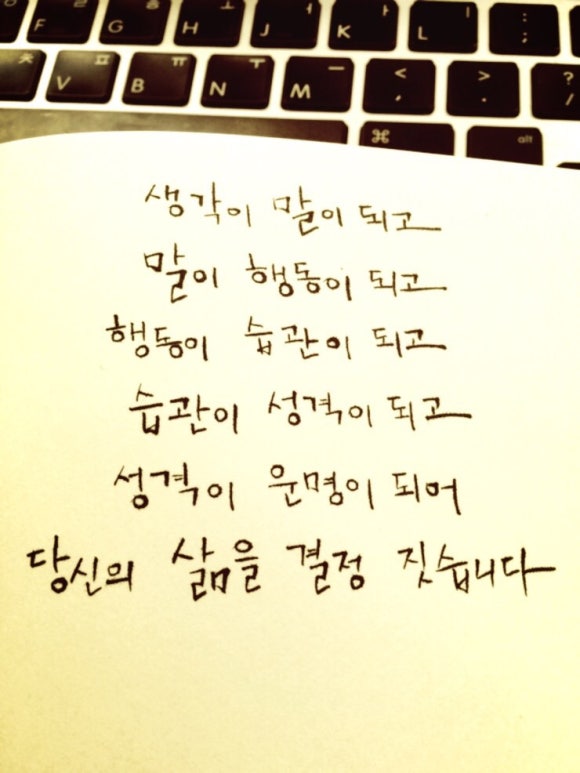 F ㄹ G ㅎ H ㅗ J ㅓ K ㅏ L ㅣ : ;
ㅊ V ㅍ B ㅠ N ㅜ M ㅡ < , > . ? /
⌘ alt
생각이 말이 되고
말이 행동이 되고
행동이 습관이 되고
습관이 성격이 되고
성격이 운명이 되어
당신의 삶을 결정 짓습니다